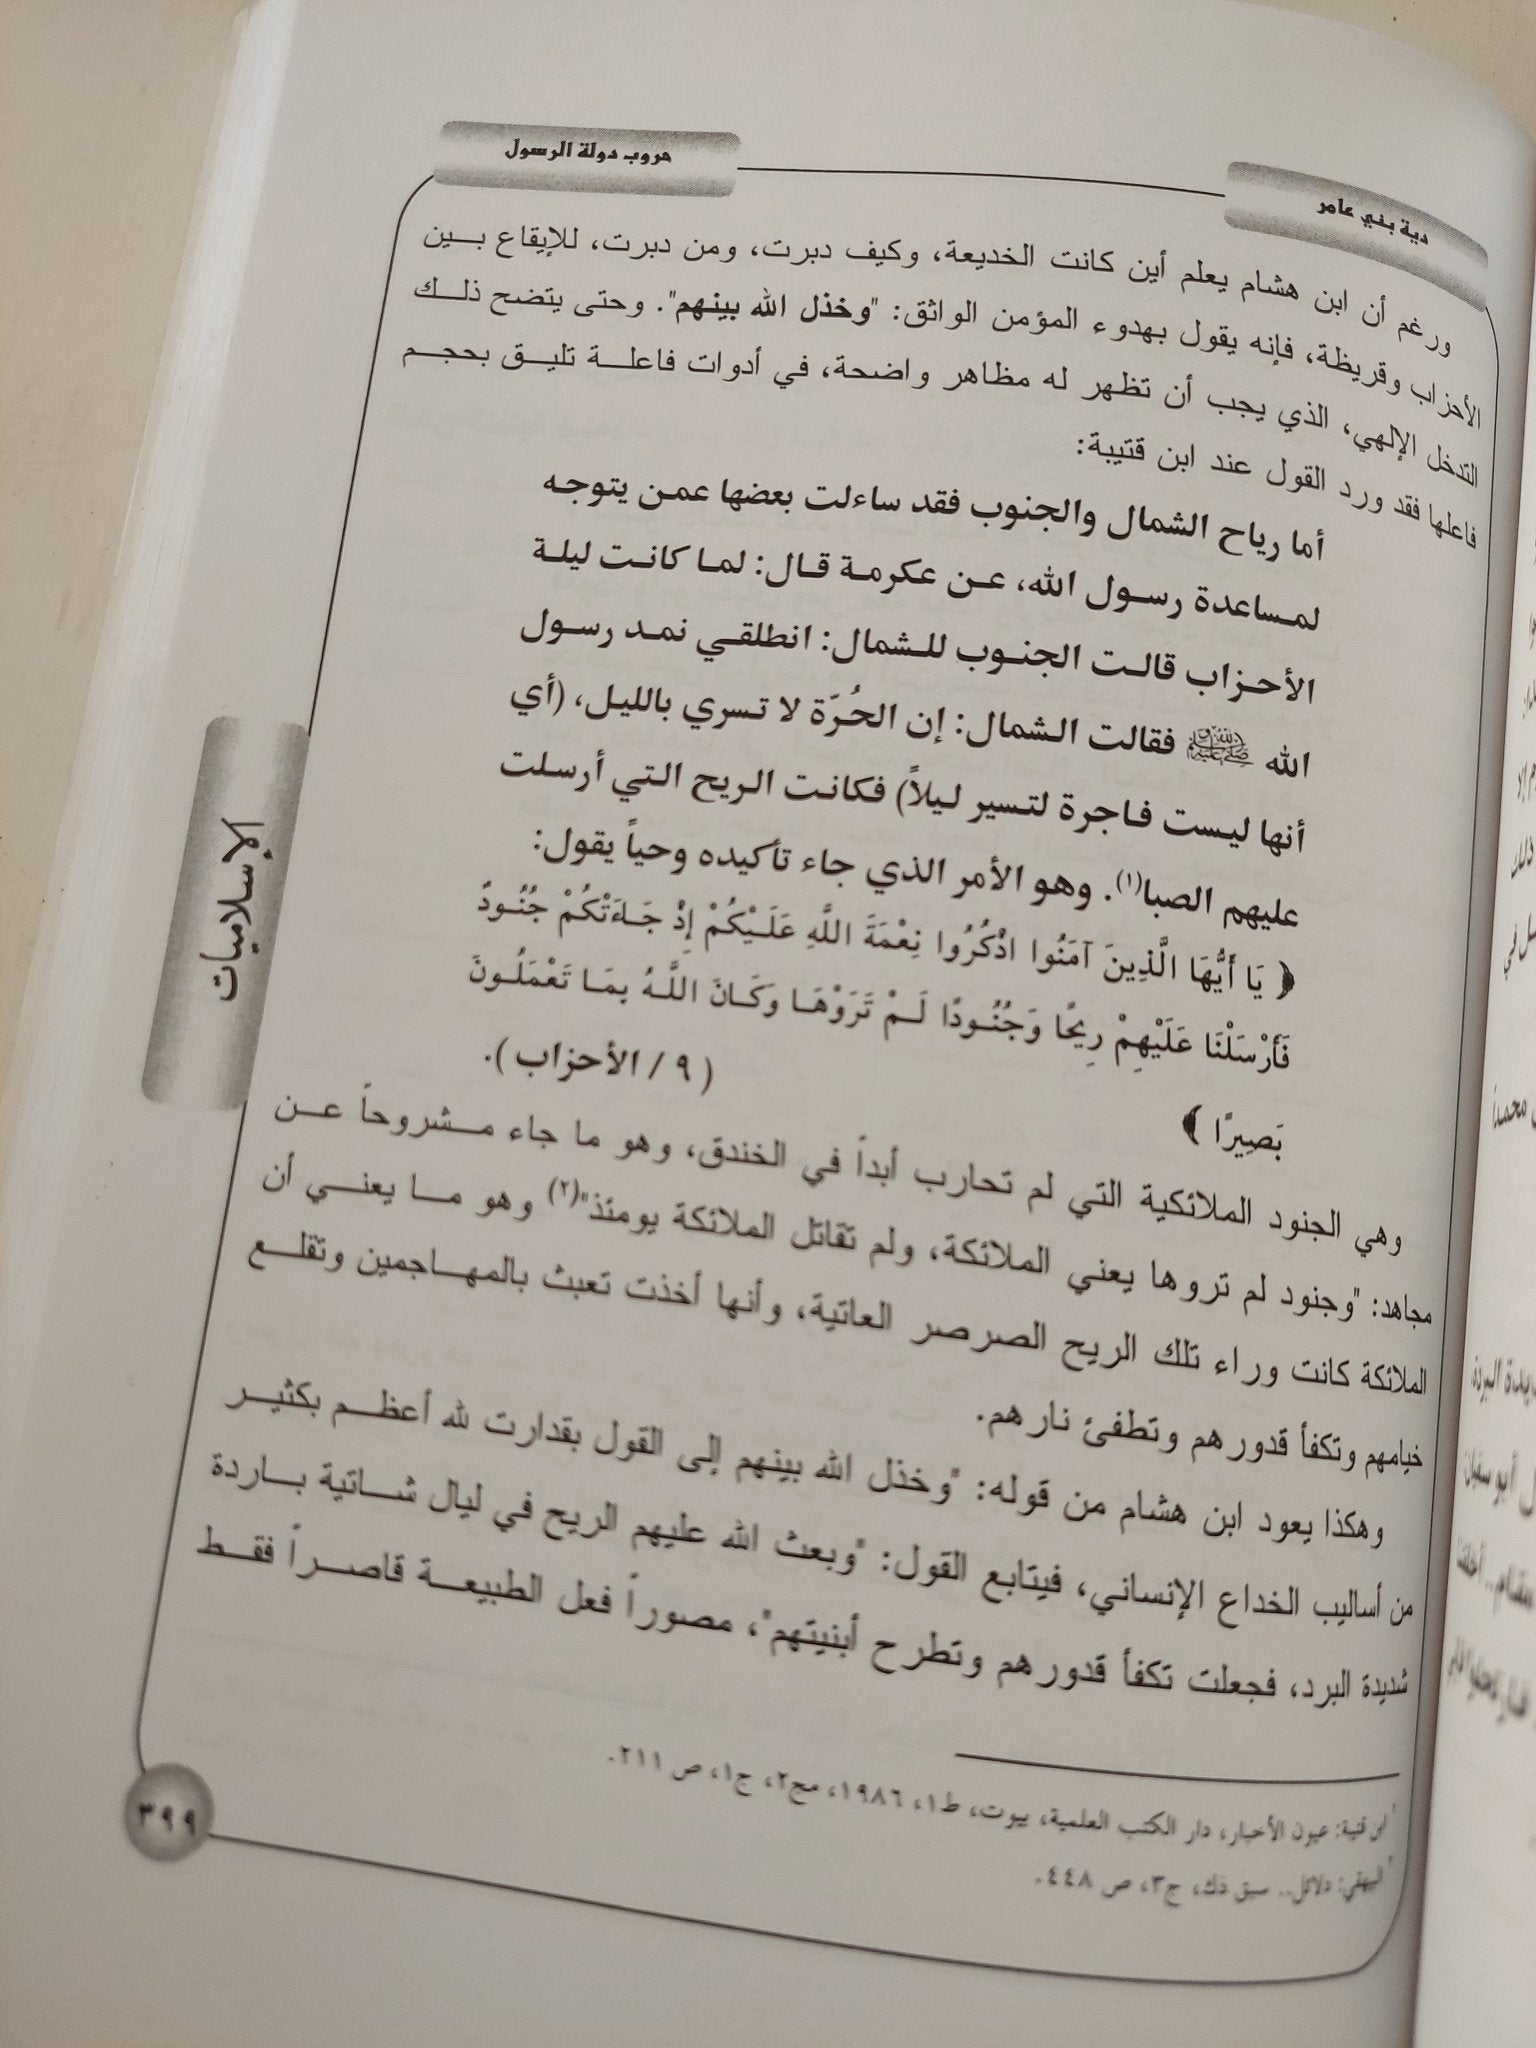 دية بني عامر
حروب دولة الرسول
ورغم أن ابن هشام يعلم أين كانت الخديعة، وكيف دبرت، ومن دبرت، للإيقاع بين
الأحزاب وقريظة، فإنه يقول بهدوء المؤمن الواثق: "وخذل الله بينهم". وحتى يتضح ذلك
التدخل الإلهي، الذي يجب أن تظهر له مظاهر واضحة، في أدوات فاعلة تليق بحجم
فاعلها فقد ورد القول عند ابن قتيبة:
أما رياح الشمال والجنوب فقد ساءلت بعضها عمن يتوجه
لمساعدة رسول الله، عن عكرمة قال: لما كانت ليلة
الأحزاب قالت الجنوب للشمال: انطلقي نمد رسول
الله ﷺ فقالت الشمال: إن الحُرّة لا تسري بالليل، (أي
أنها ليست فاجرة لتسير ليلاً) فكانت الريح التي أرسلت
عليهم الصبا(١). وهو الأمر الذي جاء تأكيده وحياً يقول:
﴿ يَا أَيُّهَا الَّذِينَ آمَنُوا اذْكُرُوا نِعْمَةَ اللَّهِ عَلَيْكُمْ إِذْ جَاءَتْكُمْ جُنُودٌ
فَأَرْسَلْنَا عَلَيْهِمْ رِيحًا وَجُنُودًا لَمْ تَرَوْهَا وَكَانَ اللَّهُ بِمَا تَعْمَلُونَ
بَصِيرًا ﴾ ( ٩ / الأحزاب ).
وهي الجنود الملائكية التي لم تحارب أبداً في الخندق، وهو ما جاء مشروحاً عن
مجاهد: "وجنود لم تروها يعني الملائكة، ولم تقاتل الملائكة يومئذ"(٢) وهو ما يعني أن
الملائكة كانت وراء تلك الريح الصرصر العاتية، وأنها أخذت تعبث بالمهاجمين وتقلع
خيامهم وتكفأ قدورهم وتطفئ نارهم.
وهكذا يعود ابن هشام من قوله: "وخذل الله بينهم إلى القول بقدارت لله أعظم بكثير
من أساليب الخداع الإنساني، فيتابع القول: "وبعث الله عليهم الريح في ليال شاتية باردة
شديدة البرد، فجعلت تكفأ قدورهم وتطرح أبنيتهم"، مصوراً فعل الطبيعة قاصراً فقط
١ ابن قتيبة: عيون الأخبار، دار الكتب العلمية، بيروت، ط١، ١٩٨٦، مج٢، ج١، ص ٢١١.
٢ البيهقي: دلائل.. سبق ذك، ج٣، ص ٤٤٨.
٣٩٩
الإسلاميات